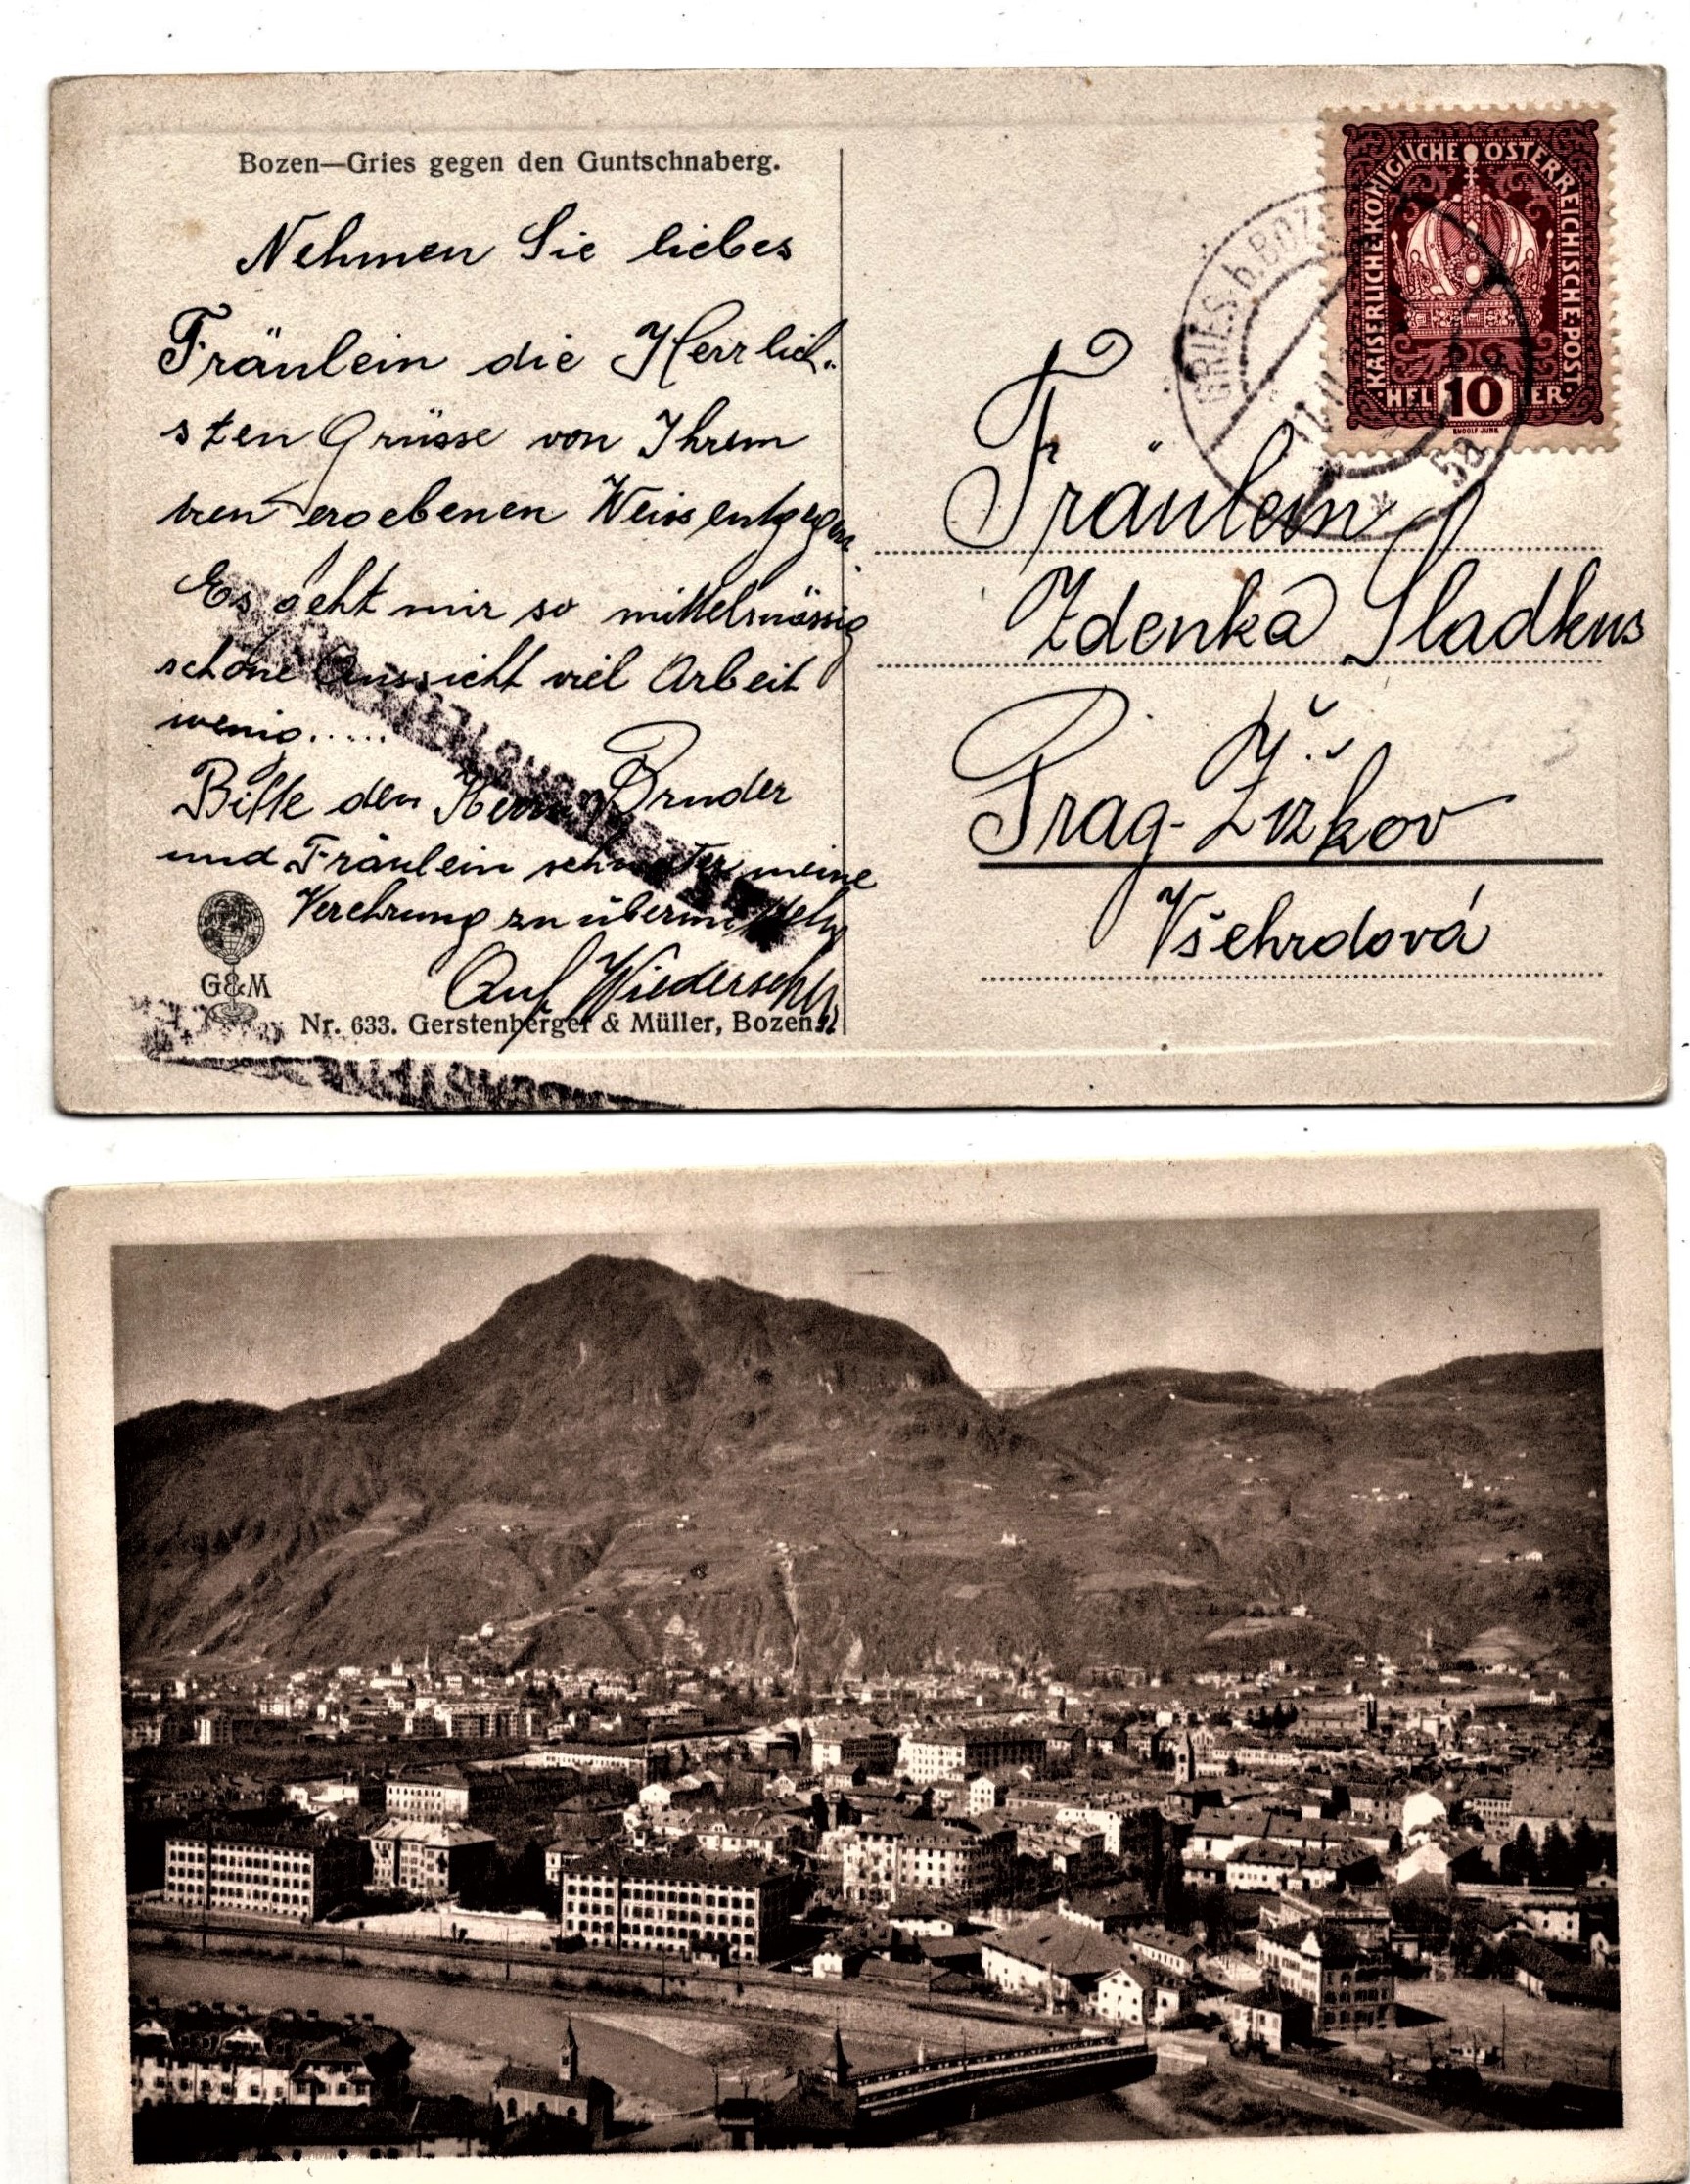 Bozen—Gries gegen den Guntschnaberg.
Nehmen Sie liebes
Fräulein die Herrlich-
sten Grüsse von Ihrem
treu ergebenen Weiss entgegen.
Es geht mir so mittelmässig
schöne Aussicht viel Arbeit
wenig.....
Bitte den Herrn Bruder
und Fräulein schwester meine
Verehrung zu übermitteln
Auf Wiedersehen
G&M
Nr. 633. Gerstenberger & Müller, Bozen.
KAISERLICHE KÖNIGLICHE ÖSTERREICHISCHE POST
HELLER
10
RUDOLF JUNK
GRIES b. BOZEN
5a
Fräulein
Zdenka Sladkus
Prag-Žižkov
Všehrdová